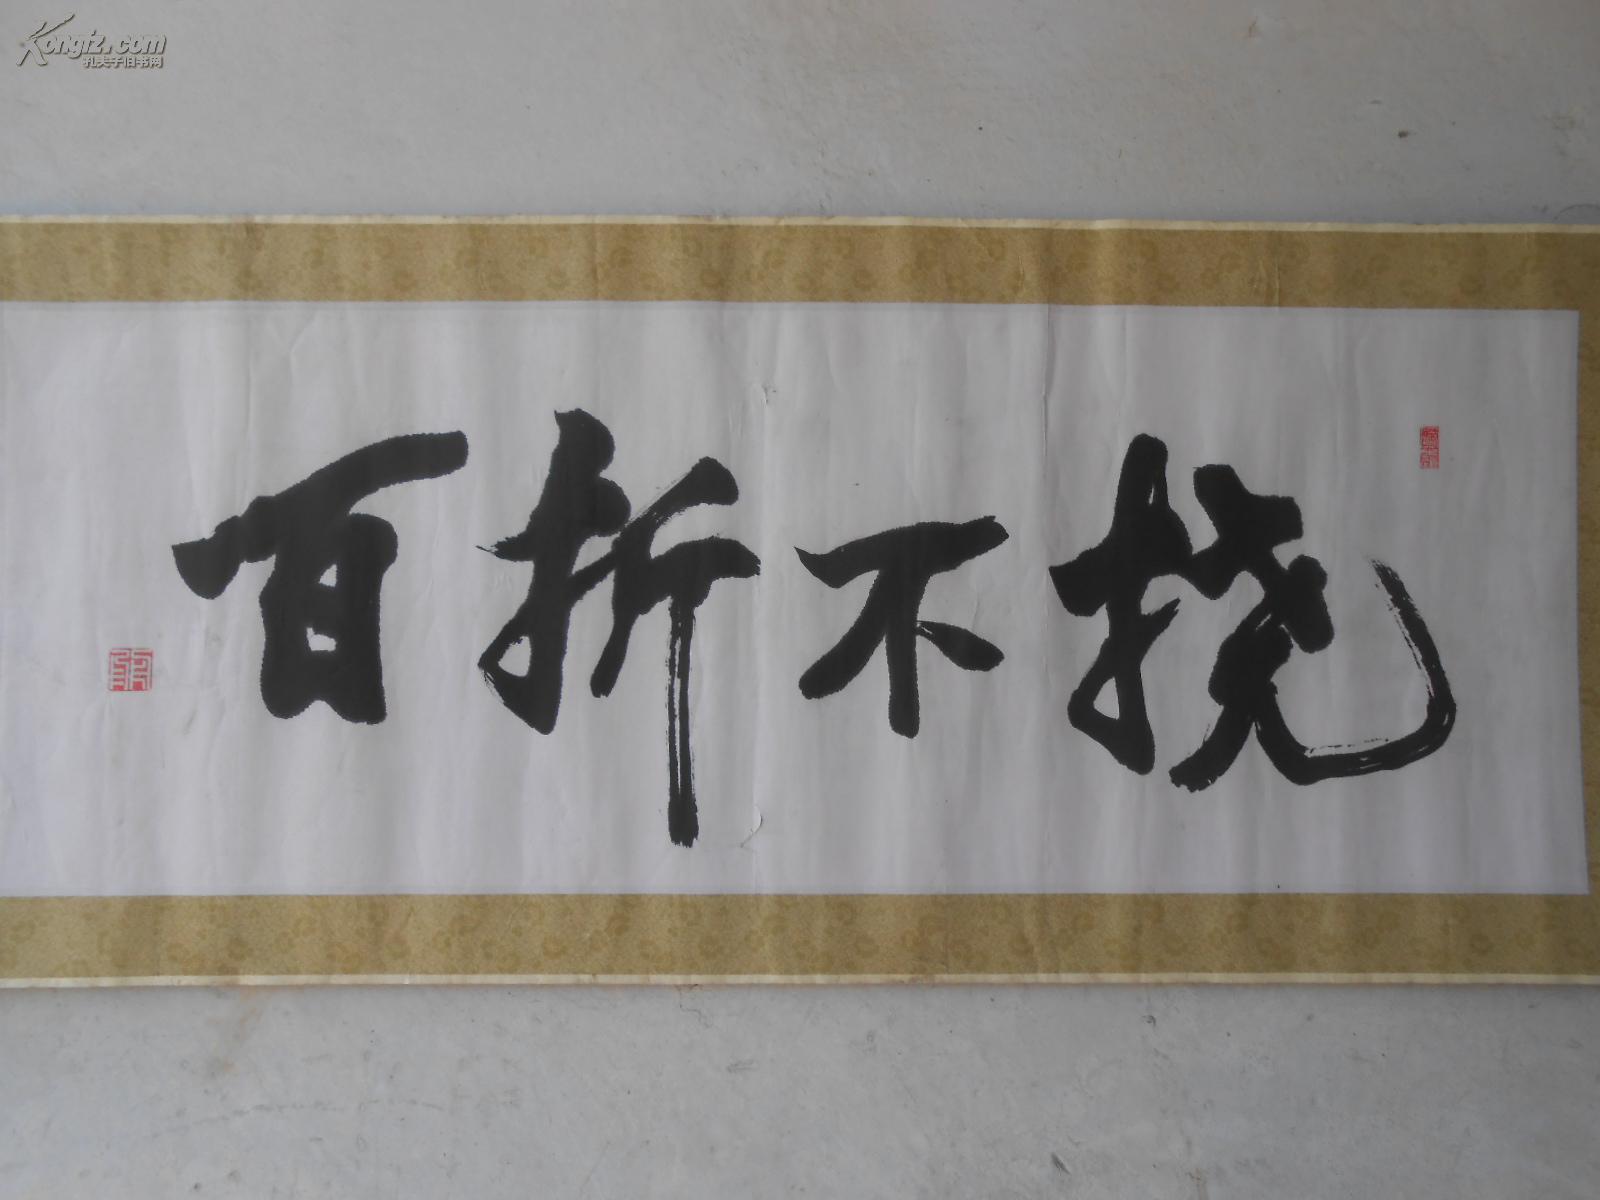 Kongfz.com
孔夫子旧书网
百折不挠